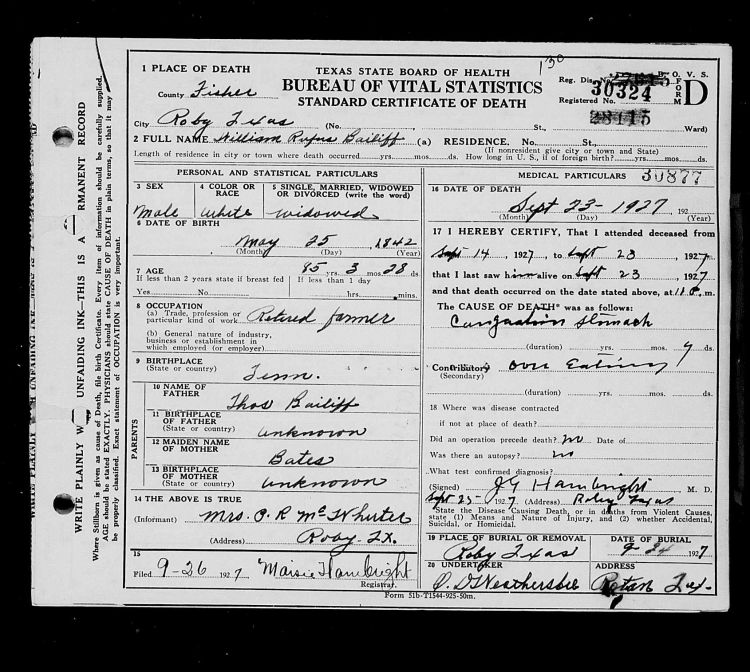 TEXAS STATE BOARD OF HEALTH
BUREAU OF VITAL STATISTICS
STANDARD CERTIFICATE OF DEATH
130
Reg. Dis. No. B. O. V. S.
30324
Registered No.
28415
FORM D
1 PLACE OF DEATH
County Fisher
City Roby Texas (No. St., Ward)
2 FULL NAME William Rufus Bailiff (a) RESIDENCE. No. St.,
(If nonresident give city or town and State)
Length of residence in city or town where death occurred yrs. mos. ds. How long in U. S., if of foreign birth? yrs. mos. ds.
PERSONAL AND STATISTICAL PARTICULARS
3 SEX
Male
4 COLOR OR RACE
White
5 SINGLE, MARRIED, WIDOWED OR DIVORCED (write the word)
widowed
6 DATE OF BIRTH
May 25 1842
(Month) (Day) (Year)
7 AGE 85 yrs 3 mos 28 ds.
If less than 2 years state if breast fed
If less than 1 day
Yes No hrs. mins.
8 OCCUPATION
(a) Trade, profession or particular kind of work Retired farmer
(b) General nature of industry, business or establishment in which employed (or employer)
9 BIRTHPLACE
(State or country) Tenn.
PARENTS
10 NAME OF FATHER
Thos Bailiff
11 BIRTHPLACE OF FATHER
(State or country) unknown
12 MAIDEN NAME OF MOTHER
Bates
13 BIRTHPLACE OF MOTHER
(State or country) unknown
14 THE ABOVE IS TRUE
(Informant) Mrs. P. R. McWhirter
(Address) Roby Tx.
15
Filed 9-26 1927 Maisie Hambright
Registrar.
MEDICAL PARTICULARS 30877
16 DATE OF DEATH
Sept 23-1927, 192
(Month) (Day) (Year)
17 I HEREBY CERTIFY, That I attended deceased from
Sept 14, 1927, to Sept 23 1927
that I last saw him alive on Sept 23, 1927
and that death occurred on the date stated above, at m.
The CAUSE OF DEATH* was as follows:
Congestion Stomach
(duration) yrs. mos. 9 ds.
Contributory over Eating
(Secondary)
(duration) yrs. mos. ds.
18 Where was disease contracted
if not at place of death?
Did an operation precede death? no Date of
Was there an autopsy? no
What test confirmed diagnosis?
(Signed) J G Hambright M. D.
Sept 23- 1927 (Address) Roby Texas
State the Disease Causing Death, or in deaths from Violent Causes, state (1) Means and Nature of Injury, and (2) whether Accidental, Suicidal, or Homicidal.
19 PLACE OF BURIAL OR REMOVAL
Roby Texas
DATE OF BURIAL
9-24 1927
20 UNDERTAKER
O. D Weathersbee
ADDRESS
Rotan Tex-
Form 51b-T1544-925-50m.
WRITE PLAINLY W UNFADING INK—THIS IS A RMANENT RECORD
Where Stillborn is given as cause of Death, file birth Certificate. Every item of information should be carefully supplied.
AGE should be stated EXACTLY. PHYSICIANS should state CAUSE OF DEATH in plain terms, so that it may
be properly classified. Exact statement of OCCUPATION is very important.